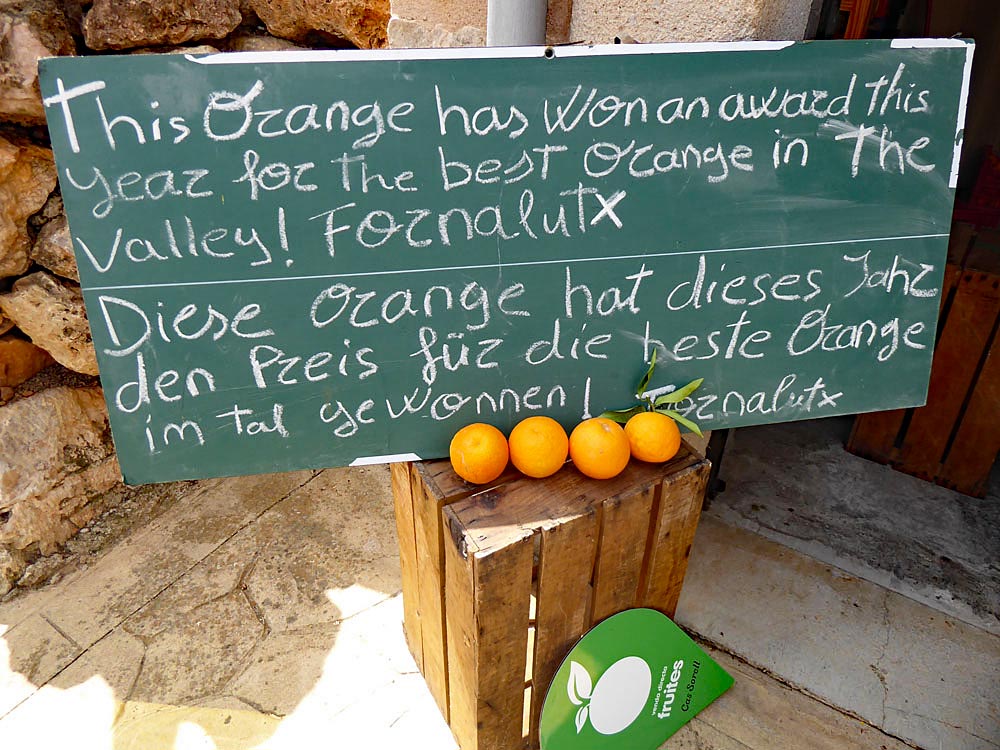 This Orange has Won an award this
year for The best Orange in The
Valley! Fornalutx
Diese Orange hat dieses Jahr
den Preis für die beste Orange
im Tal gewonnen! Fornalutx
venda directa
fruites
Cas Soroll